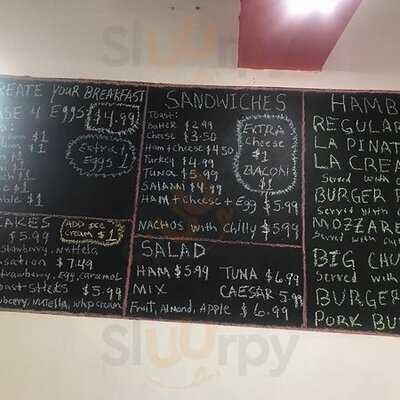 CREATE YOUR BREAKFAST
4 Eggs $4.99
Extra
Eggs 1
$1
$1
$1
SANDWICHES
Toast:
Butter $2.99
Cheese $3.50
Ham+cheese $4.50
Turkey $4.99
Tuna $5.99
SALAMI $4.99
Ham + cheese + Egg $5.99
NACHOS with Chilly $5.99
EXTRA
Cheese
$1
BACON
$1
ADD ICE
CREAM $1
$5.99
Strawberry, nuttella
$7.49
strawberry, Egg, caramel
Sticks $5.99
nutella, whip cream
SALAD
HAM $5.99 TUNA $6.99
MIX CAESAR 5.99
Fruit, Almond, Apple $6.99
HAMB
REGULAR
LA PINAT
LA CREA
Served with
BURGER
Served with
MOZZARE
Served with
BIG CHU
Served with
BURGER
PORK BU
Sluurpy
Sluurpy